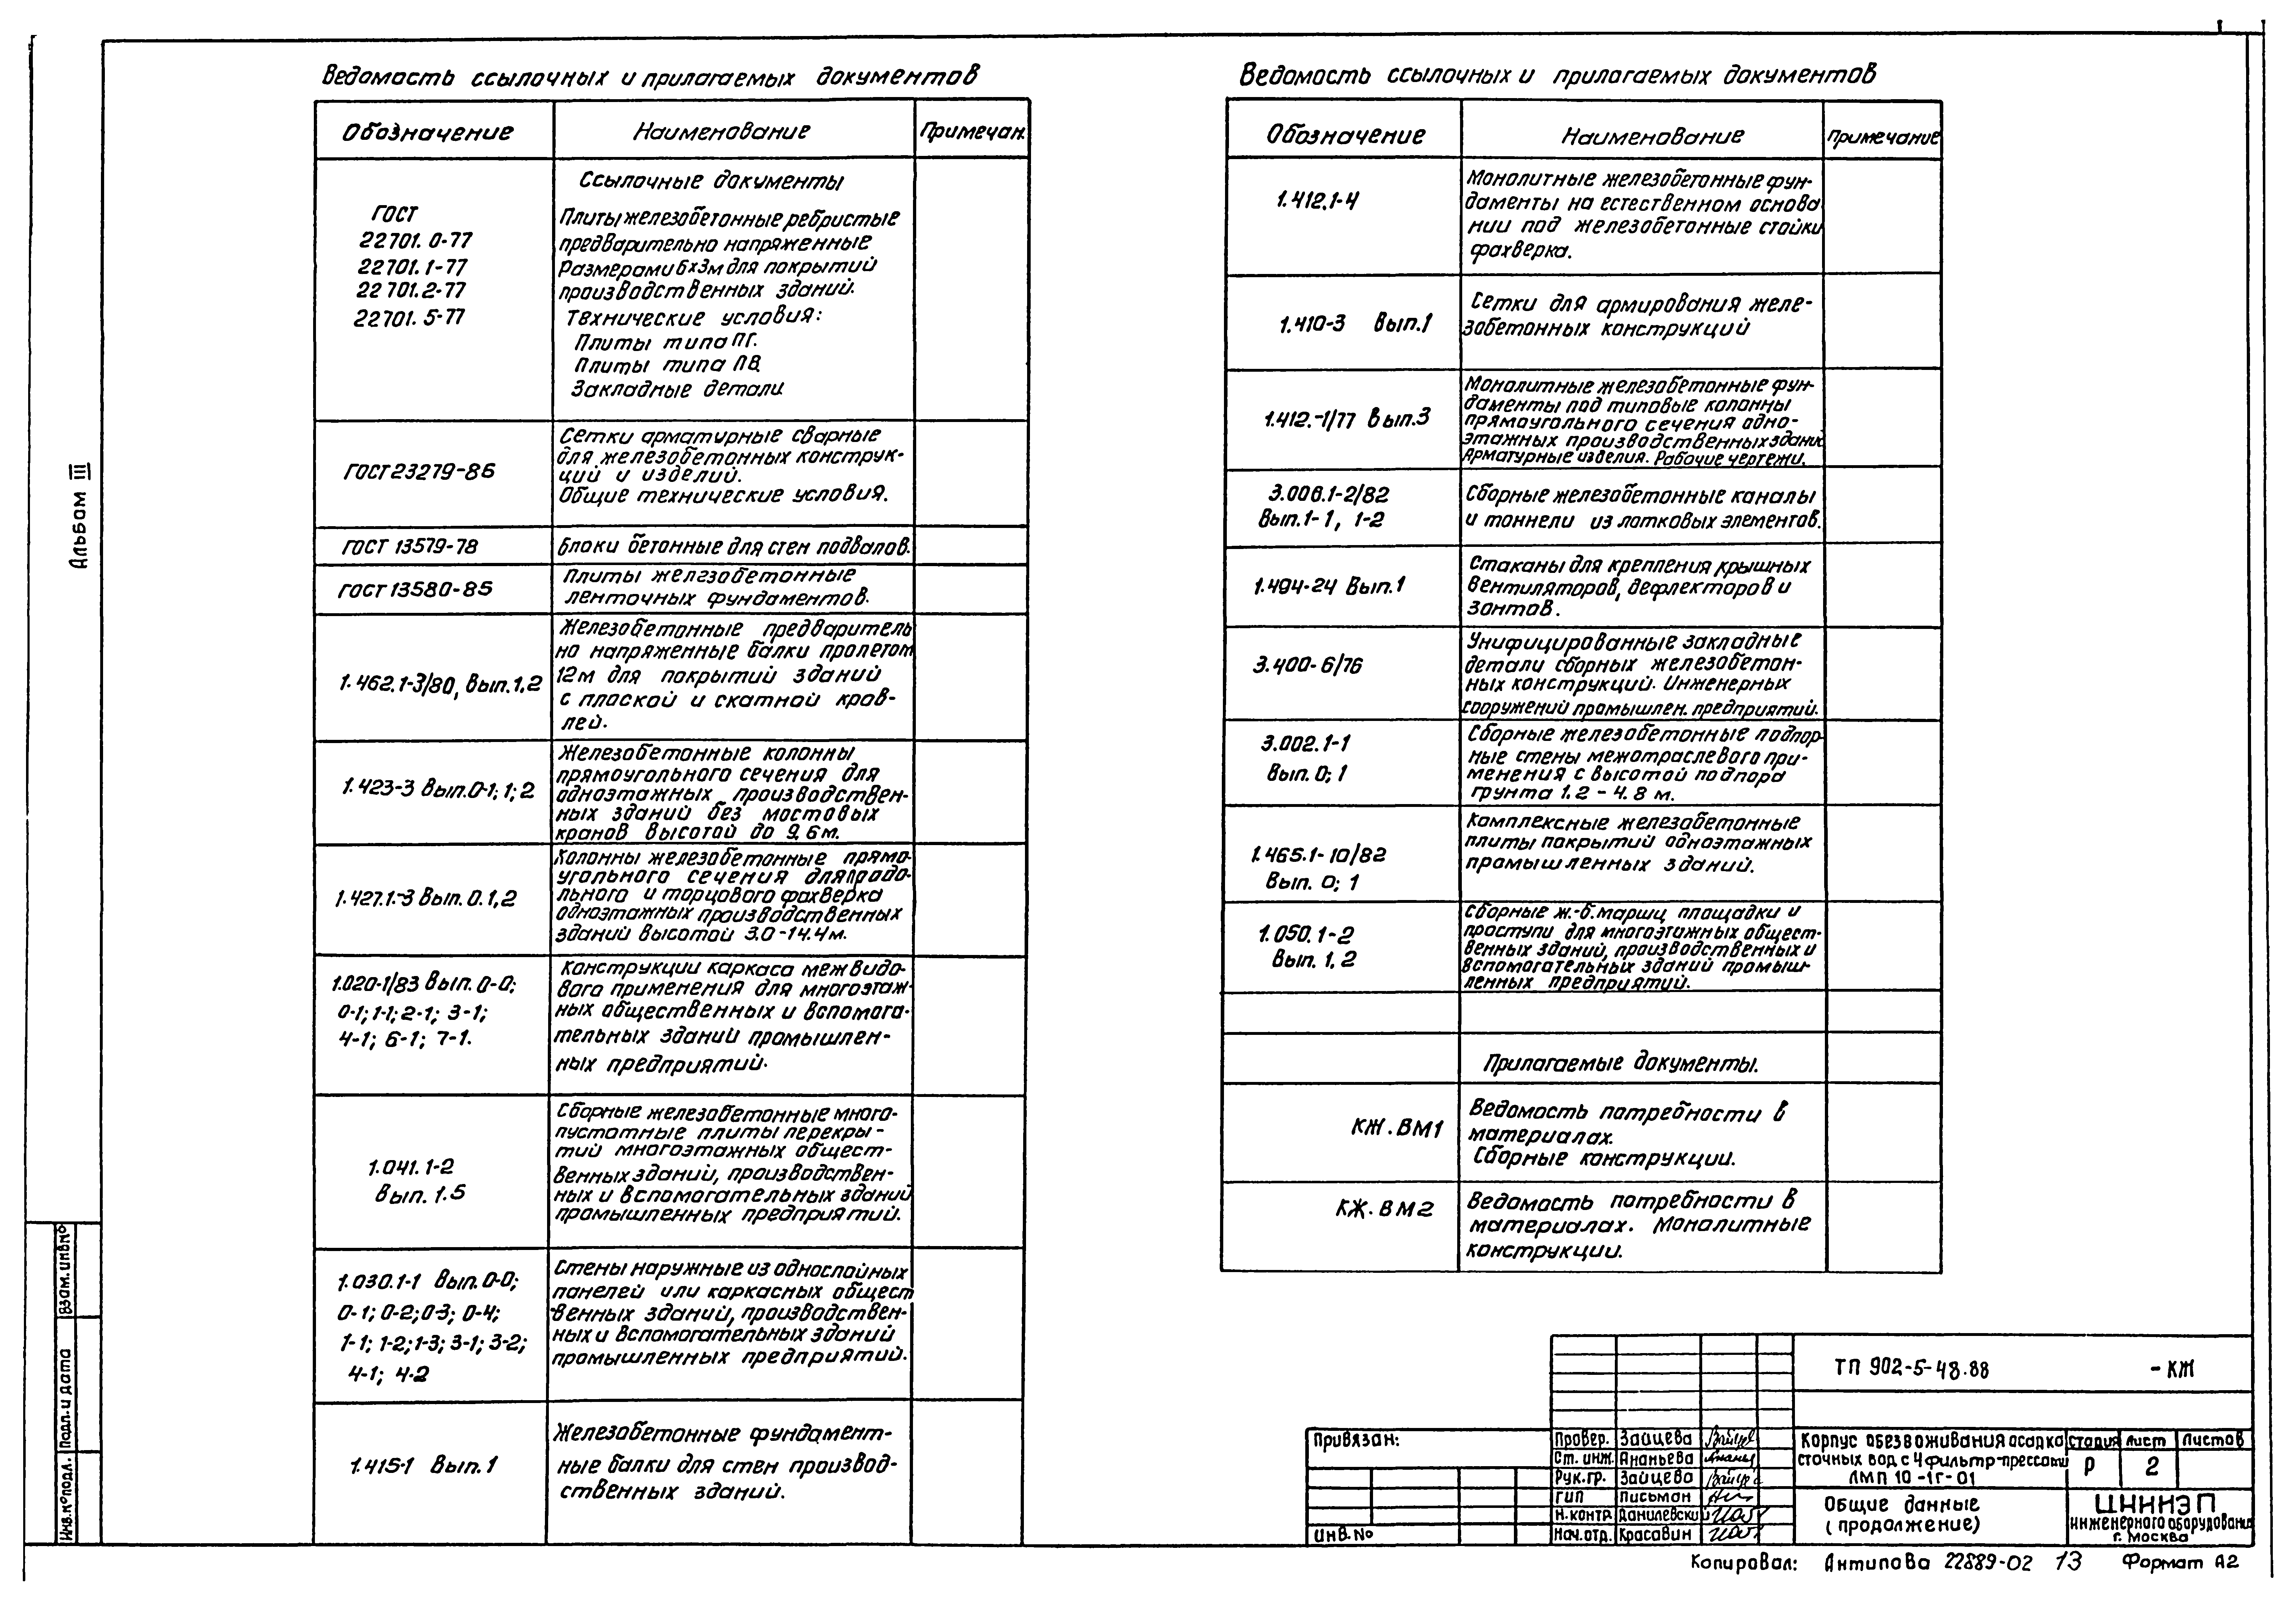 Альбом III
Ведомость ссылочных и прилагаемых документов
Обозначение Наименование Примечан.
Ссылочные документы
ГОСТ
22701.0-77
22701.1-77
22701.2-77
22701.5-77
Плиты железобетонные ребристые
предварительно напряженные
размерами 6х3м для покрытий
производственных зданий.
Технические условия:
Плиты типа ПГ.
Плиты типа ПВ.
Закладные детали
ГОСТ 23279-86
Сетки арматурные сварные
для железобетонных конструк-
ций и изделий.
Общие технические условия.
ГОСТ 13579-78
Блоки бетонные для стен подвалов.
ГОСТ 13580-85
Плиты железобетонные
ленточных фундаментов.
1.462.1-3/80, Вып.1,2
Железобетонные предваритель
но напряженные балки пролетом
12м для покрытий зданий
с плоской и скатной кров-
лей.
1.423-3 Вып.0-1; 1; 2
Железобетонные колонны
прямоугольного сечения для
одноэтажных производствен-
ных зданий без мостовых
кранов высотой до 9.6м.
1.427.1-3 Вып. 0.1,2
Колонны железобетонные прямо-
угольного сечения для продо-
льного и торцового фахверка
одноэтажных производственных
зданий высотой 3.0-14.4м.
1.020-1/83 Вып. 0-0;
0-1; 1-1; 2-1; 3-1;
4-1; 6-1; 7-1.
Конструкции каркаса межвидо-
вого применения для многоэтаж-
ных общественных и вспомога-
тельных зданий промышлен-
ных предприятий.
1.041.1-2
Вып. 1.5
Сборные железобетонные много-
пустотные плиты перекры-
тий многоэтажных общест-
венных зданий, производствен-
ных и вспомогательных зданий
промышленных предприятий.
1.030.1-1 Вып.0-0;
0-1; 0-2; 0-3; 0-4;
1-1; 1-2; 1-3; 3-1; 3-2;
4-1; 4-2
Стены наружные из однослойных
панелей или каркасных общест
венных зданий, производствен-
ных и вспомогательных зданий
промышленных предприятий.
1.415-1 Вып. 1
Железобетонные фундамент-
ные балки для стен производ-
ственных зданий.
Ведомость ссылочных и прилагаемых документов
Обозначение Наименование Примечание
1.412.1-4
Монолитные железобетонные фун-
даменты на естественном основа
нии под железобетонные стойки
фахверка.
1.410-3 Вып.1
Сетки для армирования желе-
зобетонных конструкций
1.412.-1/77 Вып.3
Монолитные железобетонные фун-
даменты под типовые колонны
прямоугольного сечения одно-
этажных производственных зданий
Арматурные изделия. Рабочие чертежи.
3.006.1-2/82
Вып.1-1, 1-2
Сборные железобетонные каналы
и тоннели из лотковых элементов.
1.494-24 Вып.1
Стаканы для крепления крышных
вентиляторов, дефлекторов и
зонтов.
3.400-6/76
Унифицированные закладные
детали сборных железобетон-
ных конструкций. Инженерных
сооружений промышлен. предприятий.
3.002.1-1
Вып. 0; 1
Сборные железобетонные подпор
ные стены межотраслевого при-
менения с высотой подпора
грунта 1.2 - 4.8 м.
1.465.1-10/82
Вып. 0; 1
Комплексные железобетонные
плиты покрытий одноэтажных
промышленных зданий.
1.050.1-2
Вып. 1.2
Сборные ж.-б. марши, площадки и
проступи для многоэтажных общест-
венных зданий, производственных и
вспомогательных зданий промыш-
ленных предприятий.
Прилагаемые документы.
КЖ.ВМ1
Ведомость потребности в
материалах.
Сборные конструкции.
КЖ.ВМ2
Ведомость потребности в
материалах. Монолитные
конструкции.
Взам. инв.№
Подп. и дата
Инв.№подл.
ТП 902-5-48.88 -КЖ
Привязан:
Инв.№
Провер. Зайцева
Ст. инж. Ананьева
Рук.гр. Зайцева
ГИП Письман
Н.контр. Данилевский
Нач.отд. Красавин
Корпус обезвоживания осадка
сточных вод с 4 фильтр-прессами
ЛМП 10-1Г-01
Стадия Лист Листов
Р 2
Общие данные
(продолжение)
ЦНИИЭП
инженерного оборудования
г. Москва
Копировал: Антипова 22889-02 13 Формат А2